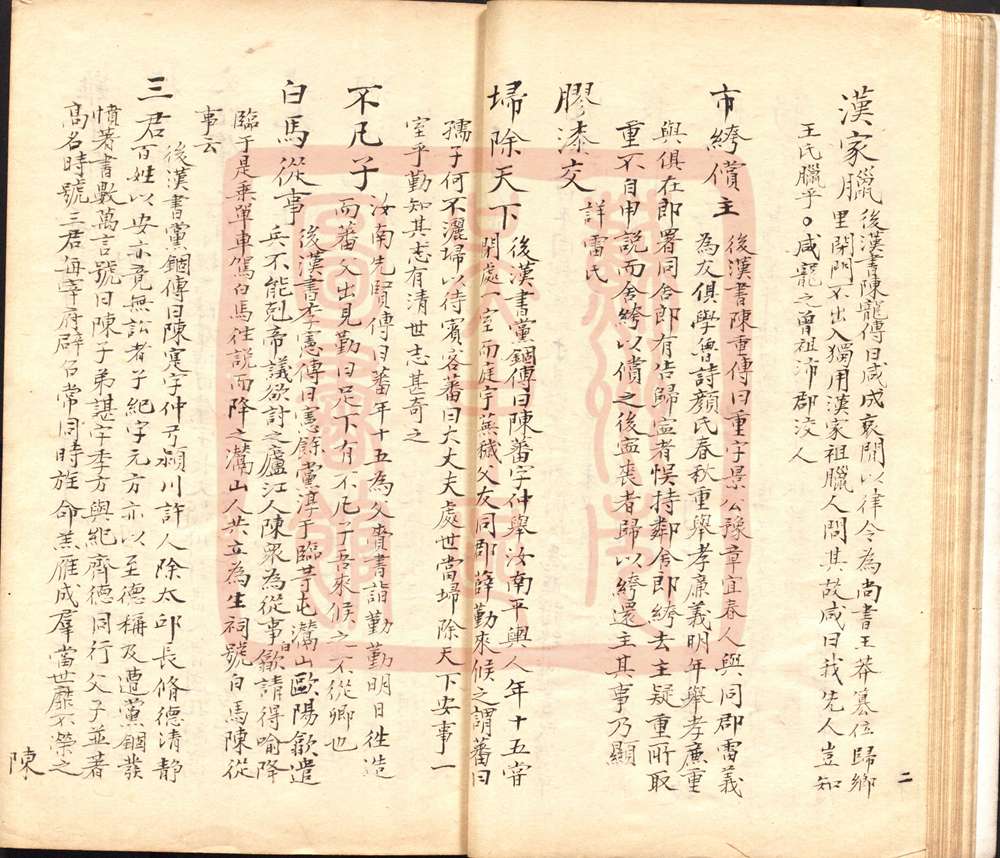 漢家臘 後漢書陳寵傳曰咸成哀間以律令為尚書王莽篡位歸鄉
里閉門不出入獨用漢家祖臘人問其故咸曰我先人豈知
王氏臘乎○咸寵之曾祖沛郡洨人
市絝償主 後漢書陳重傳曰重字景公豫章宜春人與同郡雷義
為友俱學魯詩顏氏春秋重舉孝廉義明年舉孝廉重
與俱在郎署同舍郎有告歸寍者悞持鄰舍郎絝去主疑重所取
重不自申説而舍絝以償之後寍喪者歸以絝還主其事乃顯
膠漆交 詳雷氏
埽除天下 後漢書黨錮傳曰陳蕃字仲舉汝南平輿人年十五嘗
閒處一室而庭宇蕪穢父友同郡薛勤來候之謂蕃曰
孺子何不灑埽以待賓客蕃曰大丈夫處世當埽除天下安事一
室乎勤知其志有清世志甚奇之
不凡子 汝南先賢傳曰蕃年十五為父賫書詣勤勤明日徃造
而蕃父出見勤曰足下有不凡子吾來候之不從卿也
白馬從事 後漢書李憲傳曰憲餘黨淳于臨等屯灊山歐陽歙遣
兵不能剋帝議欲討之廬江人陳衆為從事白歙請得喻降
臨于是乗單車駕白馬徃説而降之灊山人共立為生祠號白馬陳從
事云
三君 後漢書黨錮傳曰陳寔字仲弓潁川許人除太邱長脩德清靜
百姓以安亦竟無訟者子紀字元方亦以至德稱及遭黨錮發
憤著書數萬言號曰陳子弟諶字季方與紀齊德同行父子並著
高名時號三君每宰府辟召常同時旌命羔雁成羣當世靡不滎之
陳
二